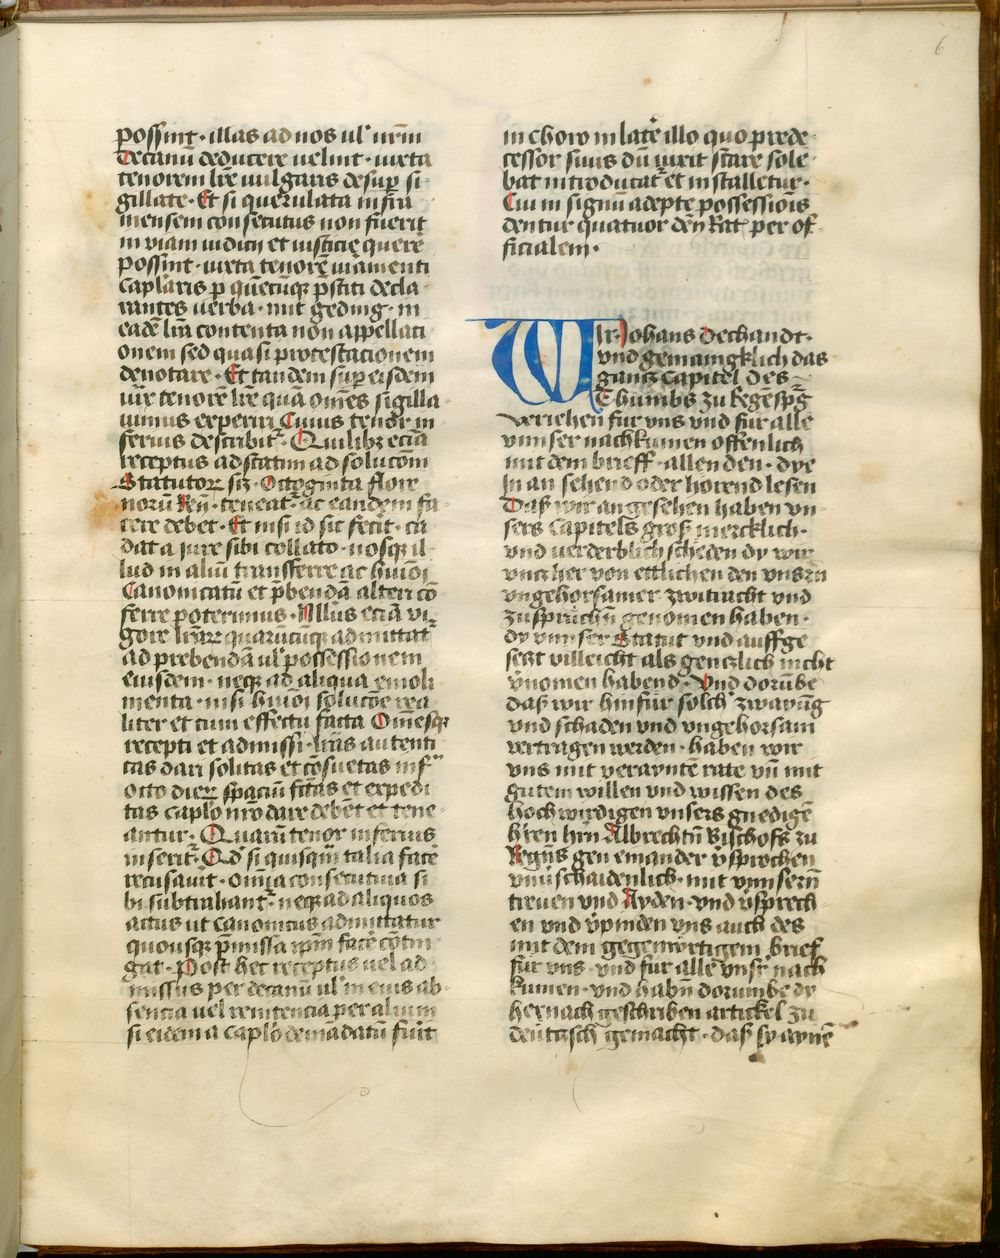 6
possint · illas ad nos ul' nr̄m
Decanū deducere uelint · iuxta
tenorem lr̄e uulgaris desup̱ si-
gillate · Et si querulata infra
mensem consecutus non fuerit
in viam iudicij et iusticię quere
possint · iuxta tenorē iuramenti
caplaris p̱ quēcūqꝫ p̄stiti decla-
rantes uerba · mit geding · in
eadē lr̄a contenta non appellati-
onem sed quasi protestacionem
denotare · Et tandem sup̱ eisdem
iux̄ tenorē lr̄e quā om̄es sigilla-
uimus experiri Cuius tenor in-
ferius describit᷑ · Quilibꝫ eciā
receptus ad statim ad solucōm
Statutoꝝ sꝫ · Octoginta flore-
norū Ren̄ · teneat᷑ · ac eandem fa-
cere debet · Et nisi id sic fecit · cū
data jure sibi collato · nosqꝫ il-
lud in aliū transfferre ac huiōi
Canonicatū et p̄bendā alteri cō-
ferre poterimus · Nullus eciā vi-
gore lr̄aꝝ quarūcūqꝫ admittat᷑
ad prebendā ul' possessionem
eiusdem · neqꝫ ad aliqua emoli-
menta · nisi huiōi solucōe rea-
liter et cum effectu facta Om̄esqꝫ
recepti et admissi · lr̄as autenti-
cas dari solitas et cōsuetas inf᷑
octo dieꝝ spaciū fc̄tas et expedi-
tas caplo nr̄o dare debēt et tene-
antur · Quarū tenor inferius
inserit᷑ · Qd' si quisqm̄ talia facē
recusauīt · om̄ia consecutiua si-
bi subtrahant᷑ · neqꝫ ad aliquos
actus ut Canonicus admittatur
quousqꝫ p̄missa ip̄m facē cōtin-
gat · Post hec receptus uel ad-
missus per decanū ul' in eius ab-
sencia uel renitencia per alium
si eidem a caplo demādatū fuīt
in choro in latē illo quo prede-
cessor suus dū uixit stāre sole-
bat introducat᷑ et installetur ·
Cui in signū adepte possessiōis
dentur quatuor dēn Rat̄ per of-
ficialem ·
WIr · Johans Dechandt ·
vnd gemaingklich das
gantz Capitel des
Thumbs zu Regēspḡ
veriehen für vns vnd für alle
vnnser nachkumen offenlich
mit dem brieff · allen den · dye
In an sehend oder horend lesen
Daß wir angesehen haben vn-
sers Capitels groß mercklich ·
vnd uerderblich scheden dy wir
vncz her von ettlichen den vnsrn
vngehorsamer zwitracht vnd
zusprüchn̄ genomen haben ·
dy vnnser Statut vnd auffge-
setzt villeicht als genczlich nicht
v̈nomen habend · Vnd dorūbe
daß wir hinfür solch zwayūg
vnd schaden vnd vngehorsam
vertragen werden · haben wir
vns mit verayntē rate vn̄ mit
gutem willen vnd wissen des
hochwirdigen vnsers gnedigē
h'ren hrn̄ Albrechtn̄ Bischofs zu
Regn̄s gen einander v̈sprochen
vnuschaidenlich · mit vnnsern̄
treuen vnd Ayden · vnd v̈sprech-
en vnd v̈pinden vns auch des
mit dem gegemv̈rtigem brief
für vns · vnd für alle vnsr̄ nach-
kumen · vnd habn̄ dorumbe dy
hernach geschriben artickel zu
deūtzsch gemacht · daß sy aynē